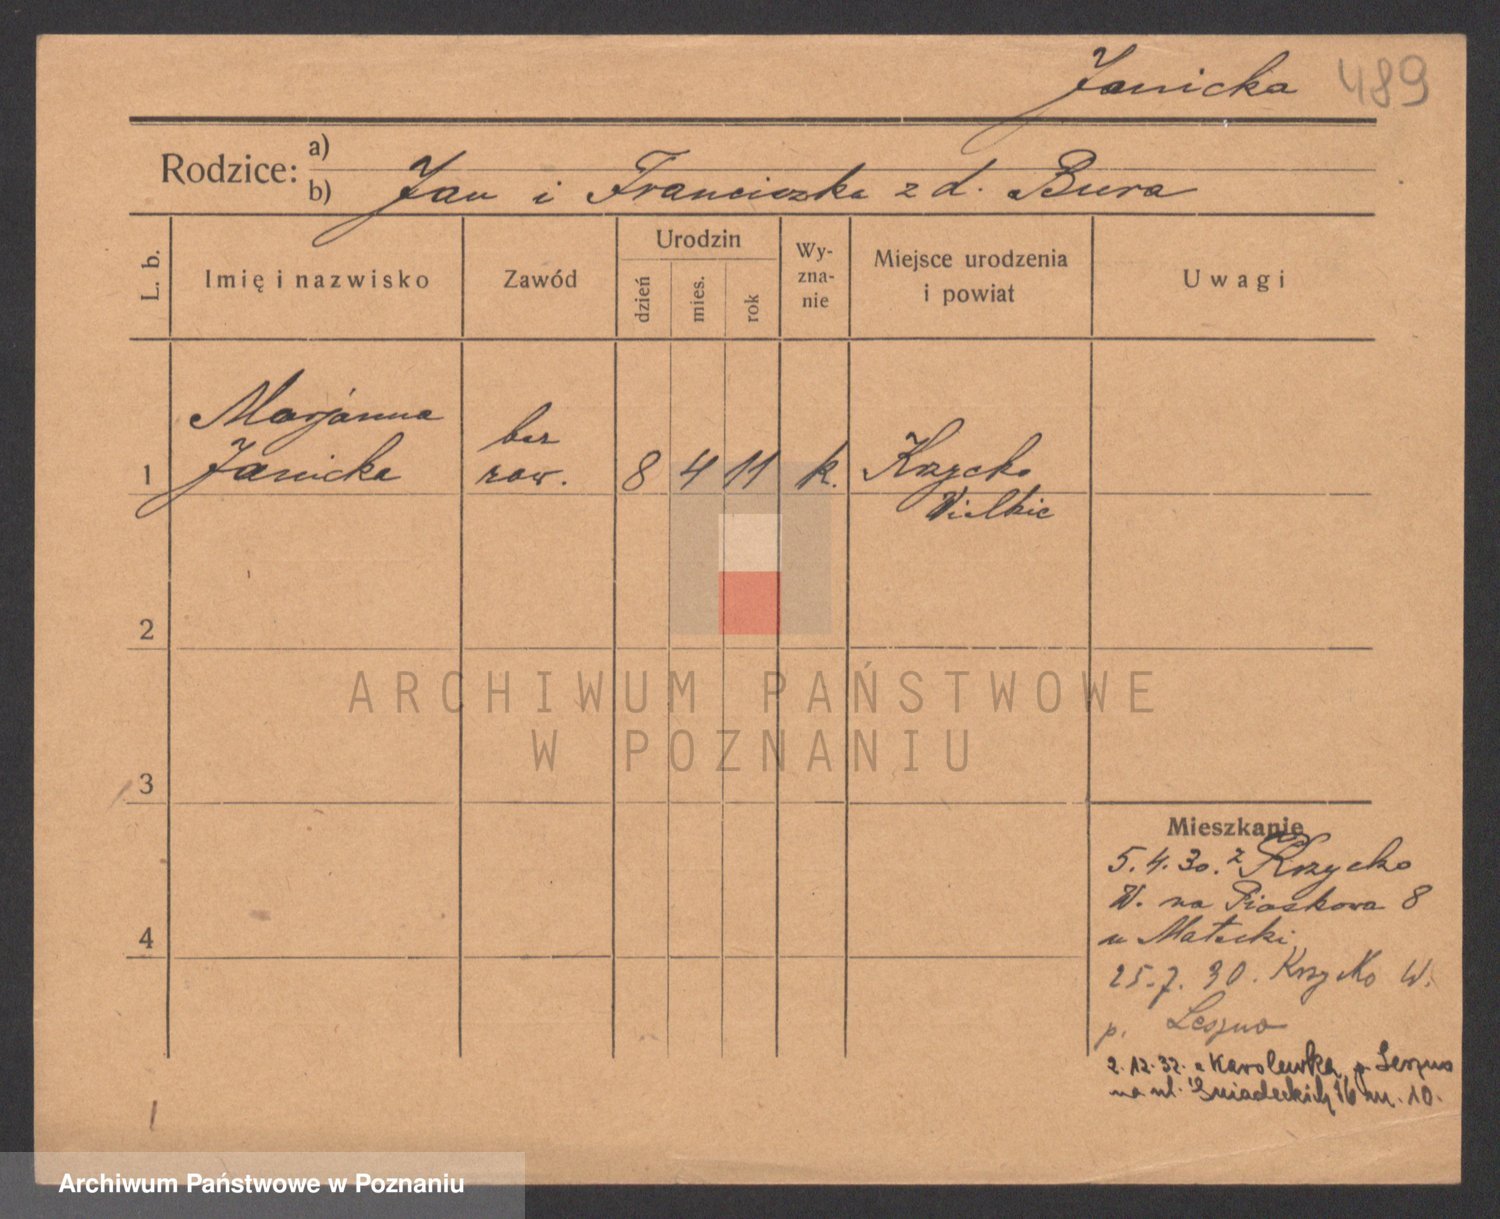 Janicka 489
Rodzice: a)
b) Jan i Franciszka z d. Bura
L. b.
Imię i nazwisko
Zawód
Urodzin
dzień
mies.
rok
Wy-
zna-
nie
Miejsce urodzenia
i powiat
Uwagi
Marjanna
Janicka
bez
zaw.
1
8 4 11 k.
Krzycko
Wielkie
2
3
4
ARCHIWUM PAŃSTWOWE
W POZNANIU
Mieszkanie
5.4.30. z Krzycko
W. na Piaskowa 8
u Małecki
25.7.30. Krzycko W.
p. Leszno
2.12.32. z Karolewka p. Leszno
na ul. Śniadeckich 16 m. 10.
Archiwum Państwowe w Poznaniu